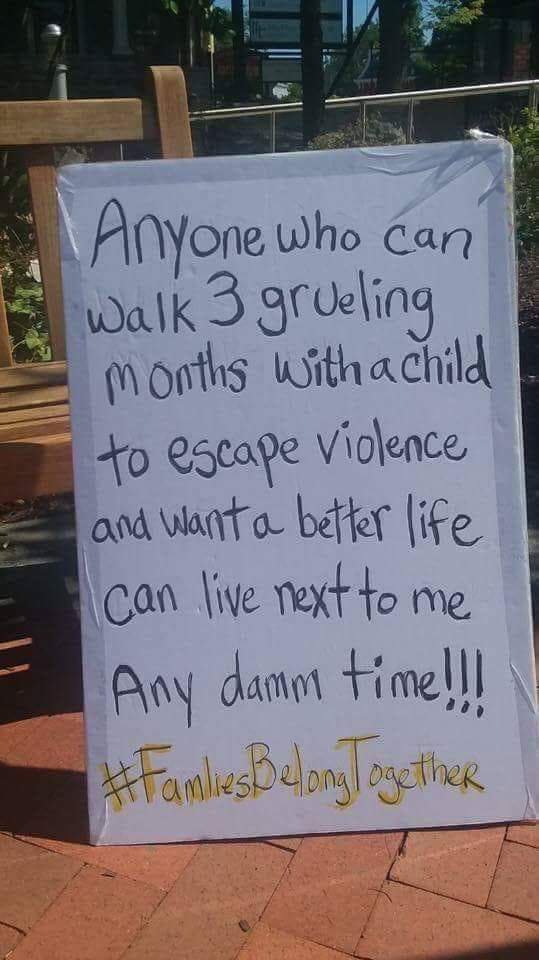 Anyone who can
walk 3 grueling
months with a child
to escape violence
and want a better life
can live next to me
Any damm time!!!
#FamliesBelongTogether